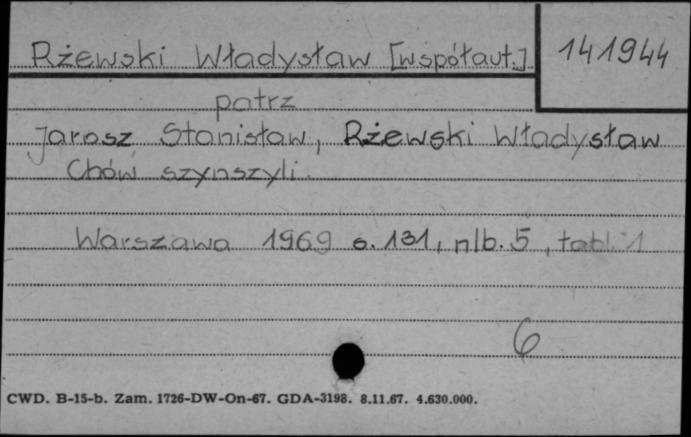 Rżewski Władysław [współaut.] 141944
patrz
Jarosz Stanisław, Rżewski Władysław
Chów szynszyli.
Warszawa 1969 s. 131, nlb. 5, tabl. 1
6
CWD. B-15-b. Zam. 1726-DW-On-67. GDA-3198. 8.11.67. 4.630.000.